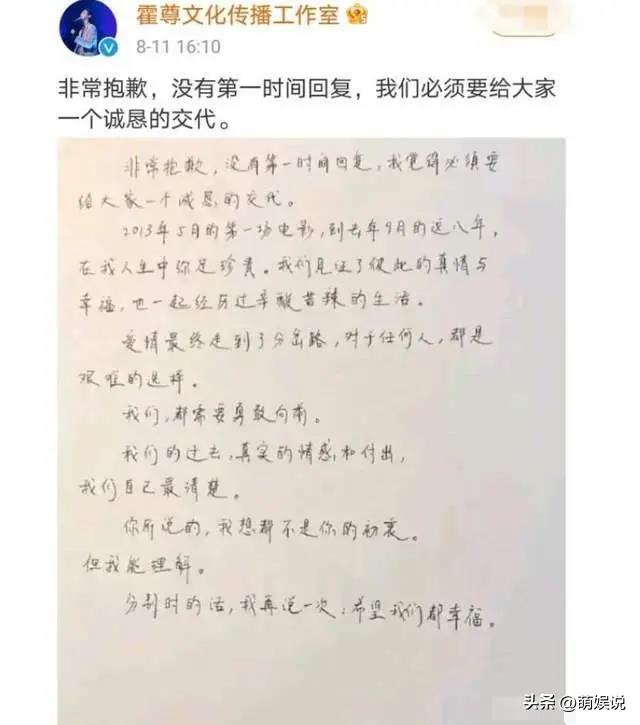 霍尊文化传播工作室
8-11 16:10
非常抱歉，没有第一时间回复，我们必须要给大家
一个诚恳的交代。
非常抱歉，没有第一时间回复，我觉得必须要
给大家一个诚恳的交代。
2013年5月的第一场电影，到去年9月的这八年，
在我人生中弥足珍贵。我们见证了彼此的真情与
幸福，也一起经历过辛酸苦辣的生活。
爱情最终走到了分岔路，对于任何人，都是
艰难的选择。
我们，都需要勇敢向前。
我们的过去，真实的情感和付出，
我们自己最清楚。
你所说的，我想都不是你的初衷。
但我能理解。
分别时的话，我再说一次：希望我们都幸福。
头条@萌娱说